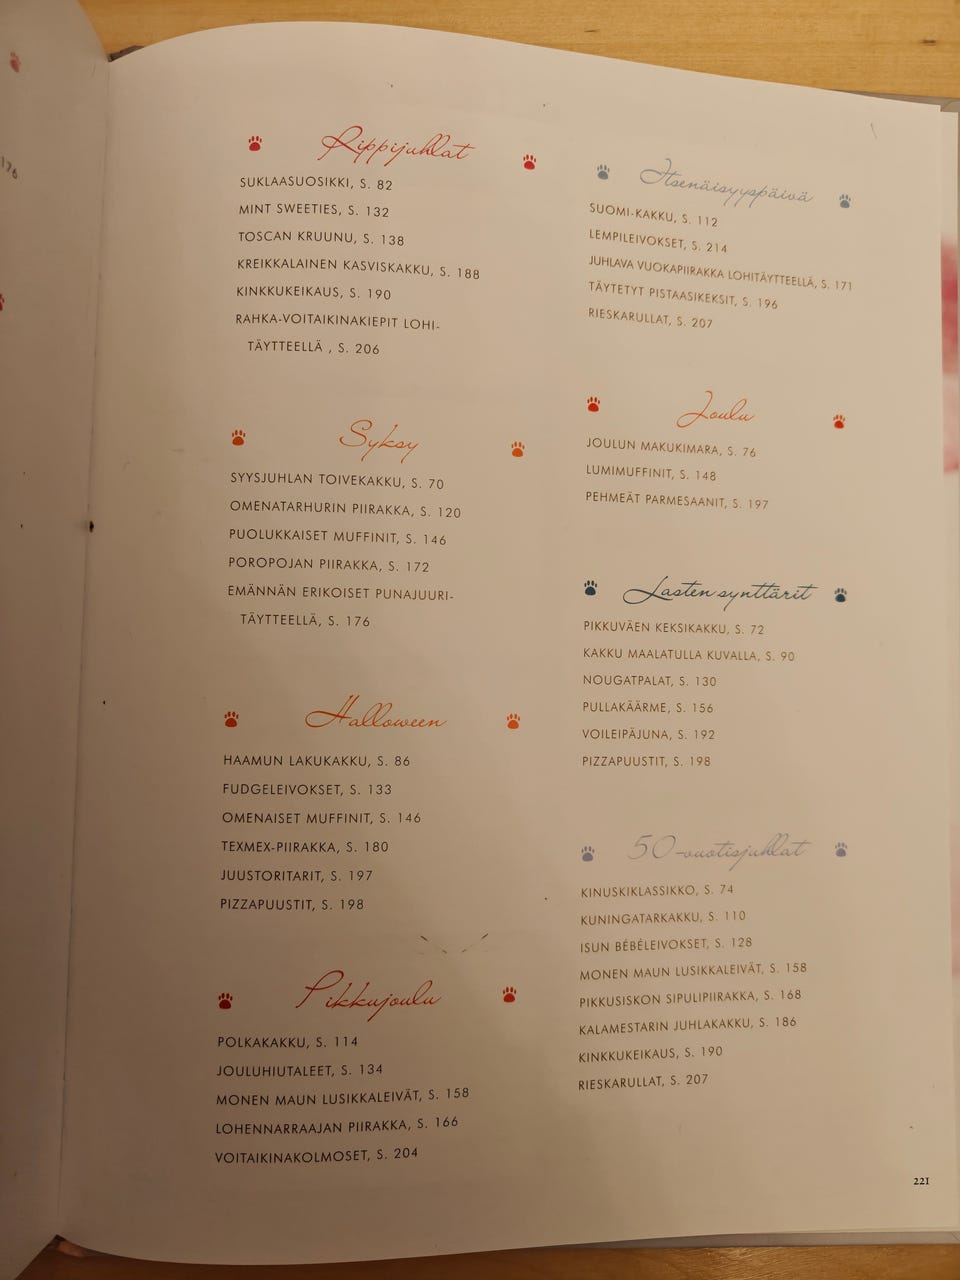 176
Rippijuhlat
SUKLAASUOSIKKI, S. 82
MINT SWEETIES, S. 132
TOSCAN KRUUNU, S. 138
KREIKKALAINEN KASVISKAKKU, S. 188
KINKKUKEIKAUS, S. 190
RAHKA-VOITAIKINAKIEPIT LOHI-
TÄYTTEELLÄ , S. 206
Syksy
SYYSJUHLAN TOIVEKAKKU, S. 70
OMENATARHURIN PIIRAKKA, S. 120
PUOLUKKAISET MUFFINIT, S. 146
POROPOJAN PIIRAKKA, S. 172
EMÄNNÄN ERIKOISET PUNAJUURI-
TÄYTTEELLÄ, S. 176
Halloween
HAAMUN LAKUKAKKU, S. 86
FUDGELEIVOKSET, S. 133
OMENAISET MUFFINIT, S. 146
TEXMEX-PIIRAKKA, S. 180
JUUSTORITARIT, S. 197
PIZZAPUUSTIT, S. 198
Pikkujoulu
POLKAKAKKU, S. 114
JOULUHIUTALEET, S. 134
MONEN MAUN LUSIKKALEIVÄT, S. 158
LOHENNARRAAJAN PIIRAKKA, S. 166
VOITAIKINAKOLMOSET, S. 204
Itsenäisyyspäivä
SUOMI-KAKKU, S. 112
LEMPILEIVOKSET, S. 214
JUHLAVA VUOKAPIIRAKKA LOHITÄYTTEELLÄ, S. 171
TÄYTETYT PISTAASIKEKSIT, S. 196
RIESKARULLAT, S. 207
Joulu
JOULUN MAKUKIMARA, S. 76
LUMIMUFFINIT, S. 148
PEHMEÄT PARMESAANIT, S. 197
Lasten synttärit
PIKKUVÄEN KEKSIKAKKU, S. 72
KAKKU MAALATULLA KUVALLA, S. 90
NOUGATPALAT, S. 130
PULLAKÄÄRME, S. 156
VOILEIPÄJUNA, S. 192
PIZZAPUUSTIT, S. 198
50-vuotisjuhlat
KINUSKIKLASSIKKO, S. 74
KUNINGATARKAKKU, S. 110
ISUN BÉBÉLEIVOKSET, S. 128
MONEN MAUN LUSIKKALEIVÄT, S. 158
PIKKUSISKON SIPULIPIIRAKKA, S. 168
KALAMESTARIN JUHLAKAKKU, S. 186
KINKKUKEIKAUS, S. 190
RIESKARULLAT, S. 207
221